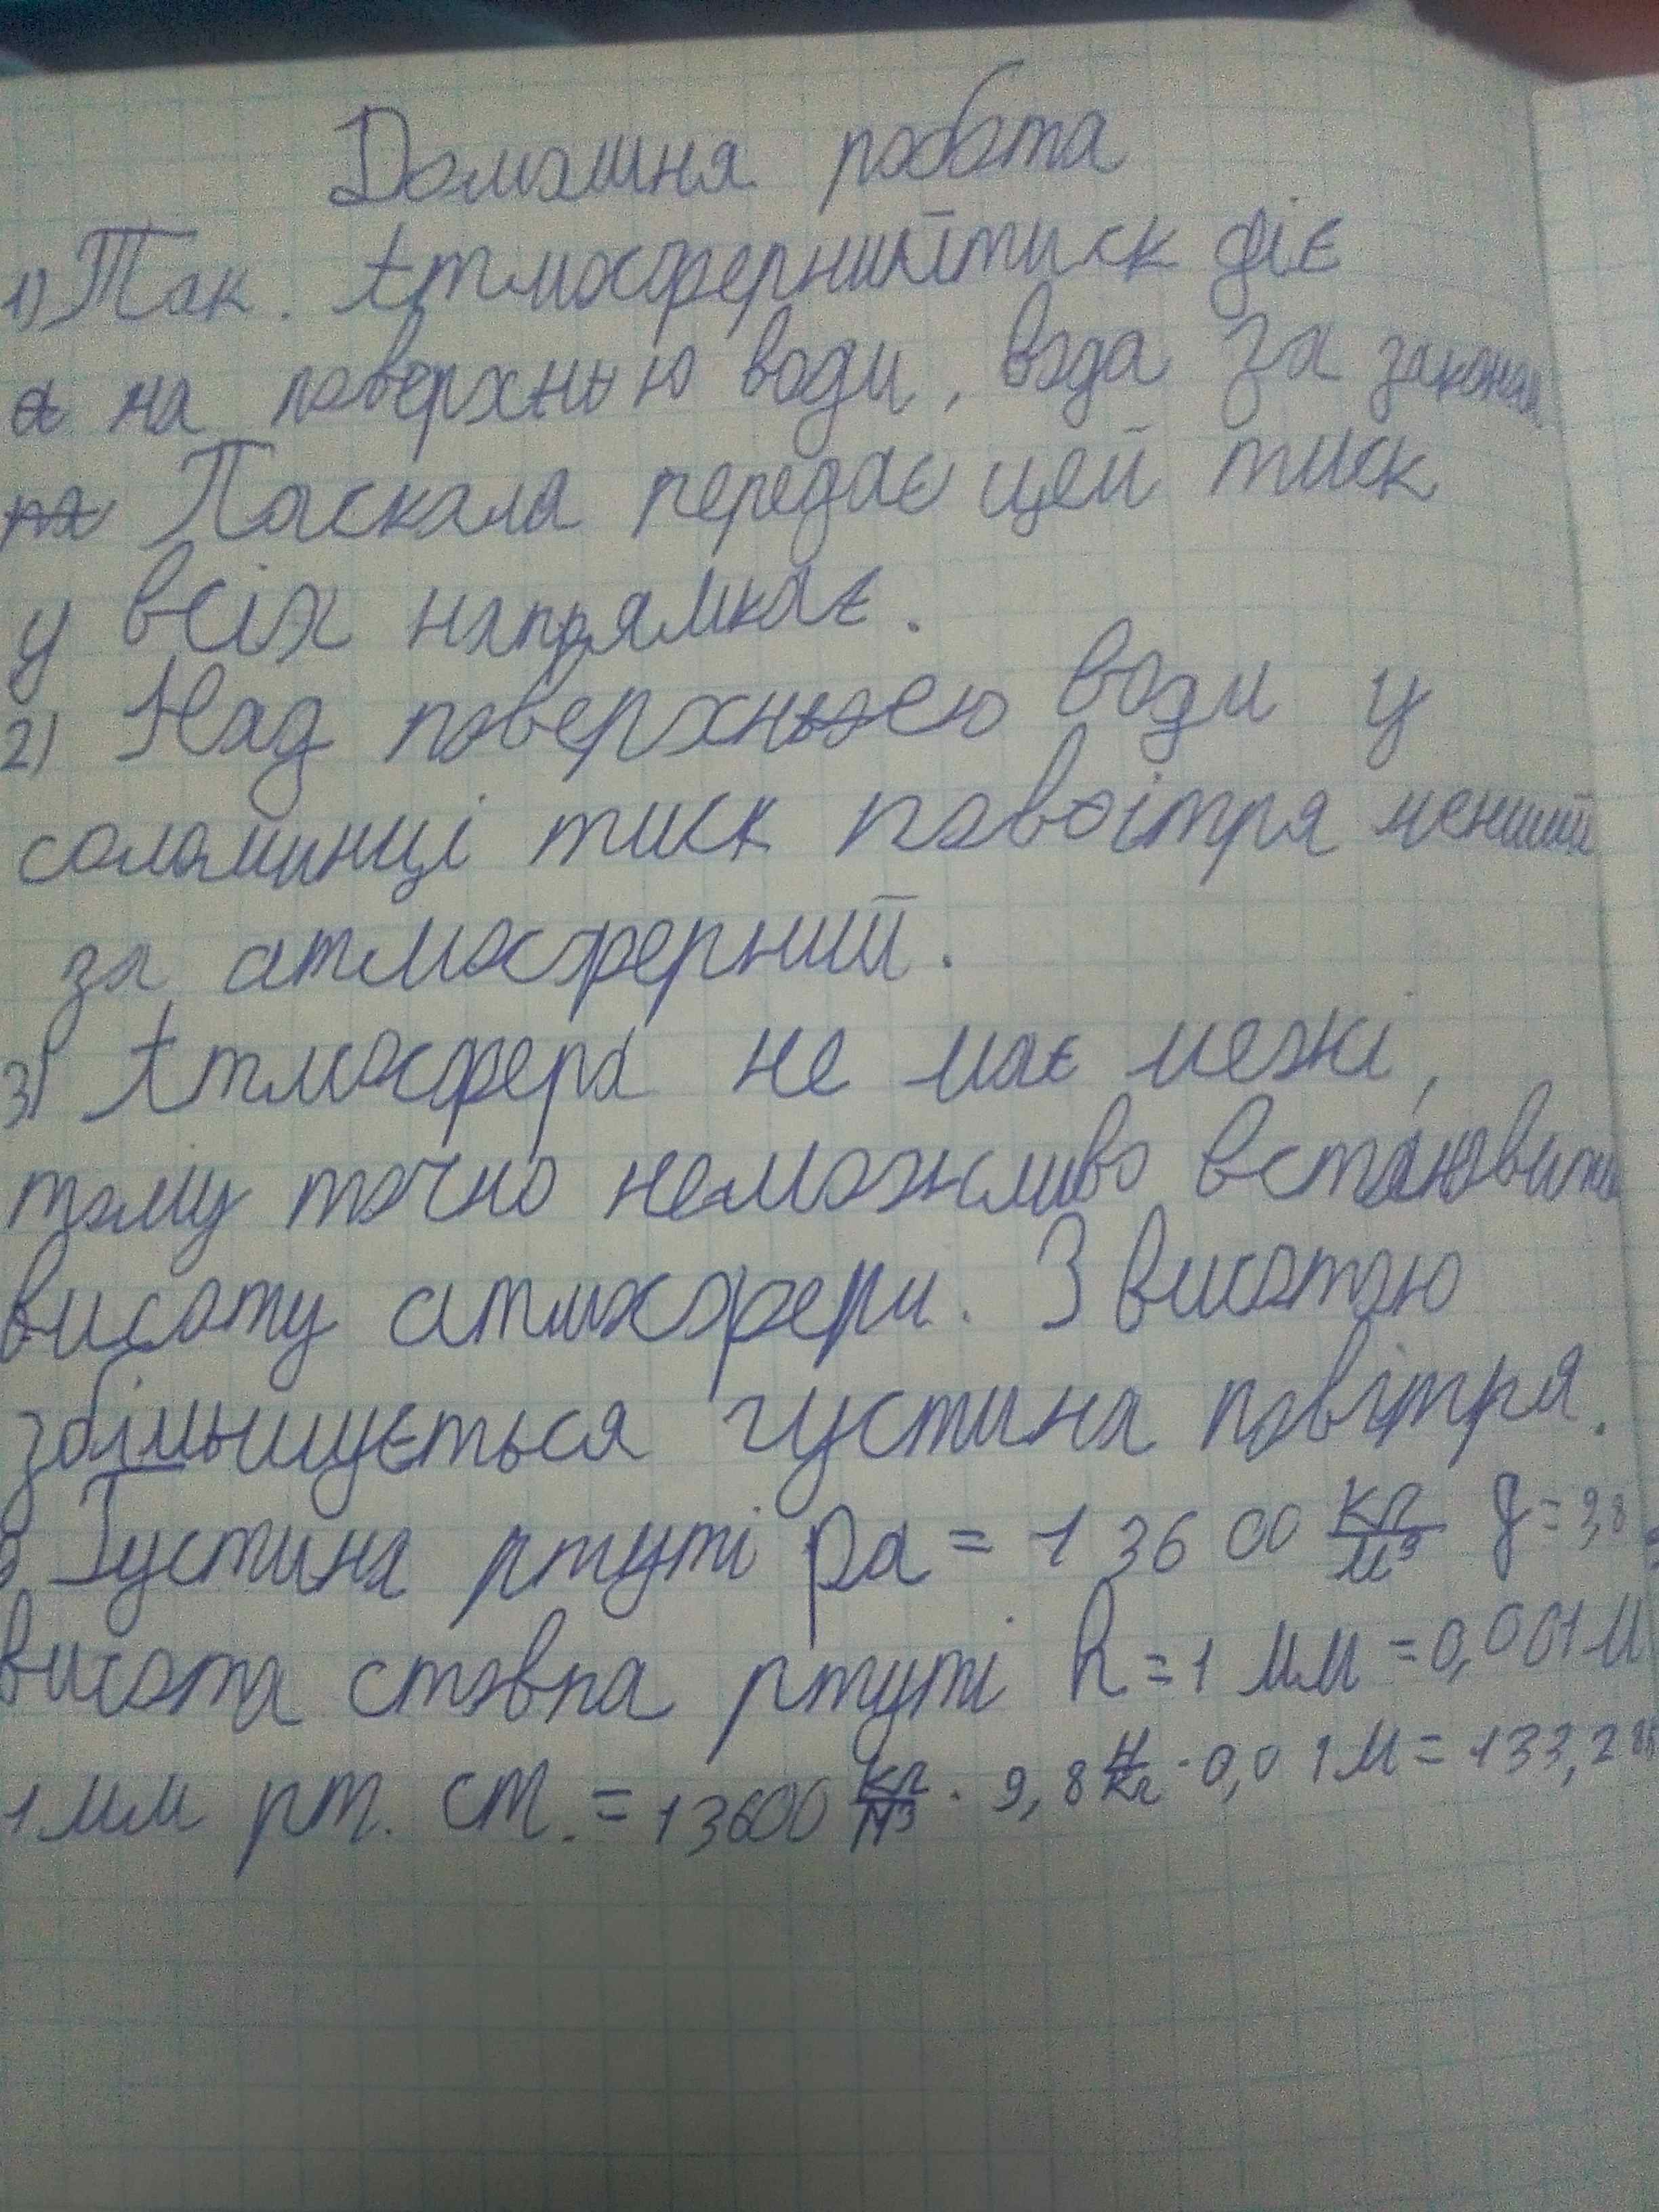 Домашня робота
1) Так. Атмосферний тиск діє
на поверхнью води, вода за законом
Паскала передає цей тиск
у всіх напрямкає.
2) Над поверхнею води у
соломинці тиск повітря менший
за атмосферний.
3) Атмосфера не має межі,
тому точно неможливо встановити
висоту атмосфери. З висотою
збільшується густина повітря.
Густина ртуті ρа = 13600 кг/м³ g = 9,8
висота стовпа ртуті h = 1 мм = 0,001 м
1 мм рт. ст. = 13600 кг/м³ · 9,8 Н/кг · 0,01 м = 133,2